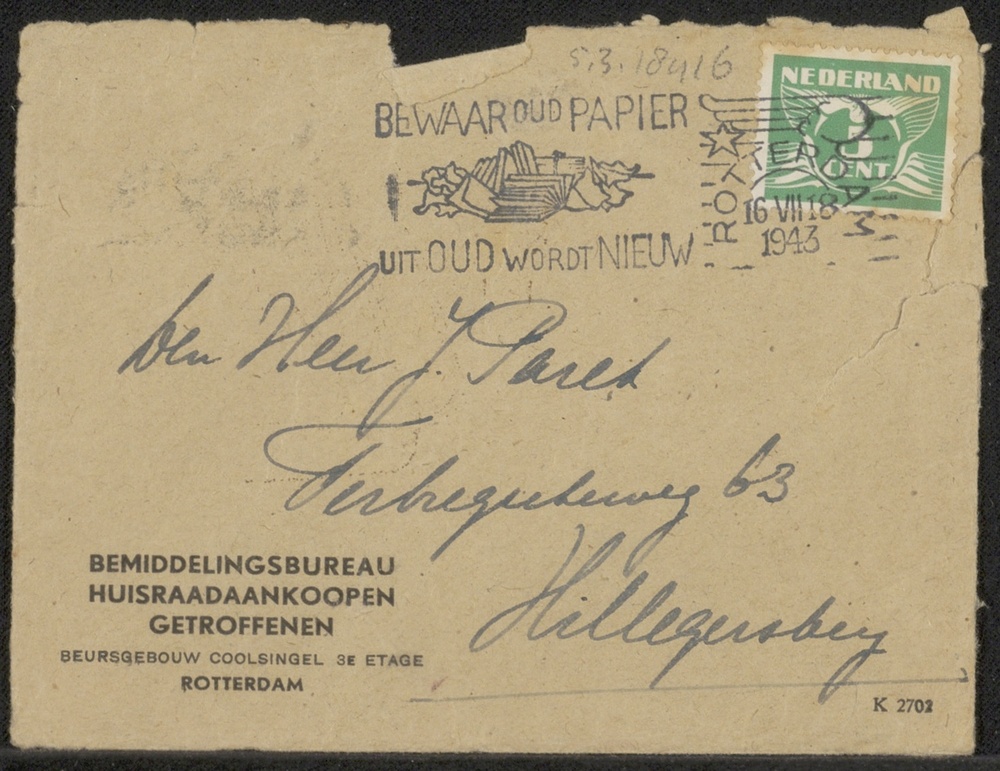 5.3.18416
BEWAAR OUD PAPIER
UIT OUD WORDT NIEUW
ROTTERDAM
16 VII 18
1943
NEDERLAND
CENT
Den Heer J. Paret
Terbregscheweg 63
Hillegersberg
BEMIDDELINGSBUREAU
HUISRAADAANKOOPEN
GETROFFENEN
BEURSGEBOUW COOLSINGEL 3E ETAGE
ROTTERDAM
K 2702